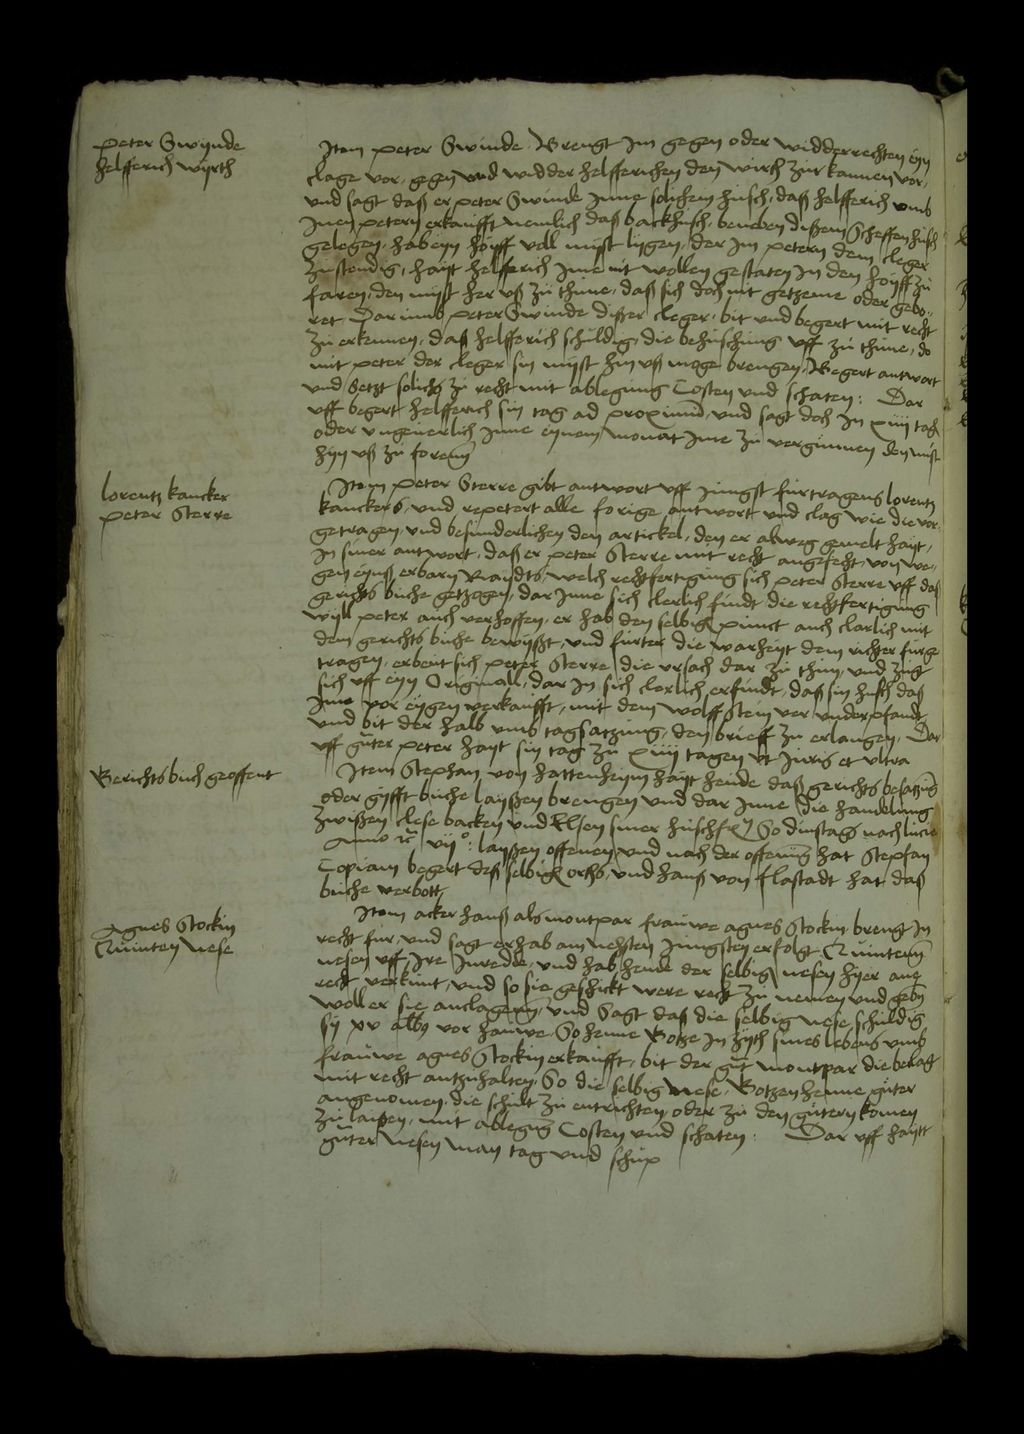 Peter Swynde
Helfferich wyrth
Item Peter Swinde Brengt im gegen oder widderrechten eyn
clage vor, gegen und widder Helfferichen den wirth zur kannen vor,
und sagt daß er Peter Swinde jnne solichem huisch, daß Helfferich umb
jnen Petern erkaufft nemlich daß backhusch, beneben dißem Scheffen husch
gelegen, hab eyn hoyff voll myst lygen, der im Petern dem cleger
zustendig, hayt Helfferich jme nit wollen gestaten in den hoyff zu
faren, den myst her uß zu thune, daß sich doch nit getzeme oder gebo-
ret Darumb Peter Swinde dißer cleger, bit und begert mit recht
zu erkennen, daß Helfferich schuldig, die behuschung uff zu thune, do
mit Peter der cleger sin myst hin uß moge brengen, Begert antwort
und setzt solichs zu recht mit ablegung Costen und schaten: Dar
uff begert Helfferich sin tag ad proximum, und sagt doch in xiiij tag
oder ungeverlich jnne eynem monat jme zu vergunnen den mist
hyn uß zu foren
Lorentz Kancker
Peter Sterre
Item Peter Sterre gibt antwort uff jungst furtragens Lorentz
Kanckers, und repetert alle forige antwort und clag wie die vor-
getragen, und besunderlichen den artickel, den er abweg gemelt hayt,
in siner antwort, daß er Peter Sterre mit recht angefecht, von we-
gen eynß erbarn Raydts, welch rechtfertigung sich Peter Sterre uff daß
gerichts buche getzogen, dar jnne sich clerlich findt die rechtfertigung
wyll Peter auch verhoffen, er hab den selbigen punct auch clarlich mit
dem gerichts buche bewyßt, und furter die warheyt dem richter furge
tragen, erbeut sich Peter Sterre die ursach dar zu thun, und zugt
sich uff eyn Originall, dar in sich clerlich erfindt, daß sin husch daß
jme vor eygen verkaufft, mit dem Wolff Stein ver underpfandt,
und bit der halb umb tagsatzung, den brieff zu erlangen, Dar
uff guter Peter hayt sin tag zu xiiij tagen ut juris et ultra
Gerichts buch geoffent
Item Stephan von Hattenheym hayt heude daß gerichts besatzung
oder gyfft buche laußen brengen und dar jnne die handelung
zwußen Clese Backen und Elsen siner huschfr So dinstag nach Lucie
Anno etc. vij°: laußen offenen und nach der offenung hat Stephan
Copiam begert deß selbigen orths, und Hans von Flastadt hat daß
buche verbott
Agnes Stockin
Quinten Nese
Item Acker Hanß als montpar frauwe Agnes Stockin brengt in
recht fur, und sagt er hab am nehsten jungsten erfolgt Quinten
Nesen uff jre jnredde, und hab heude der selbigen Nesen hyer ane
recht verkunt, und so sie geschickt were recht zu nemen und geben
woll er sie anclagen, und sagt daß die selbig Nese, schuldig
sy xv albus vor hauwe, So Henne Botze in zyth sines lebens umb
frauwe Agnes Stockin erkaufft, bit der gut montpar die beclagt
mit recht antzuhalten, So die selbig Nese, Botzen Henne guter
angenomen, die schult zu entrichten, oder zu den gutern komen
zu laißen, mit ablegung Costen und schaten: Dar uff hayt
guter Nesen man tag und schup